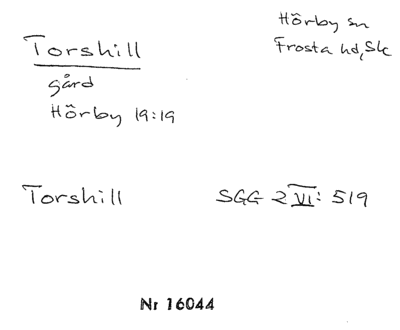 Torshill
Hörby sn
Frosta hd, Sk
gård
Hörby 19:19
Torshill SGG 2 VI: 519
Nr 16044